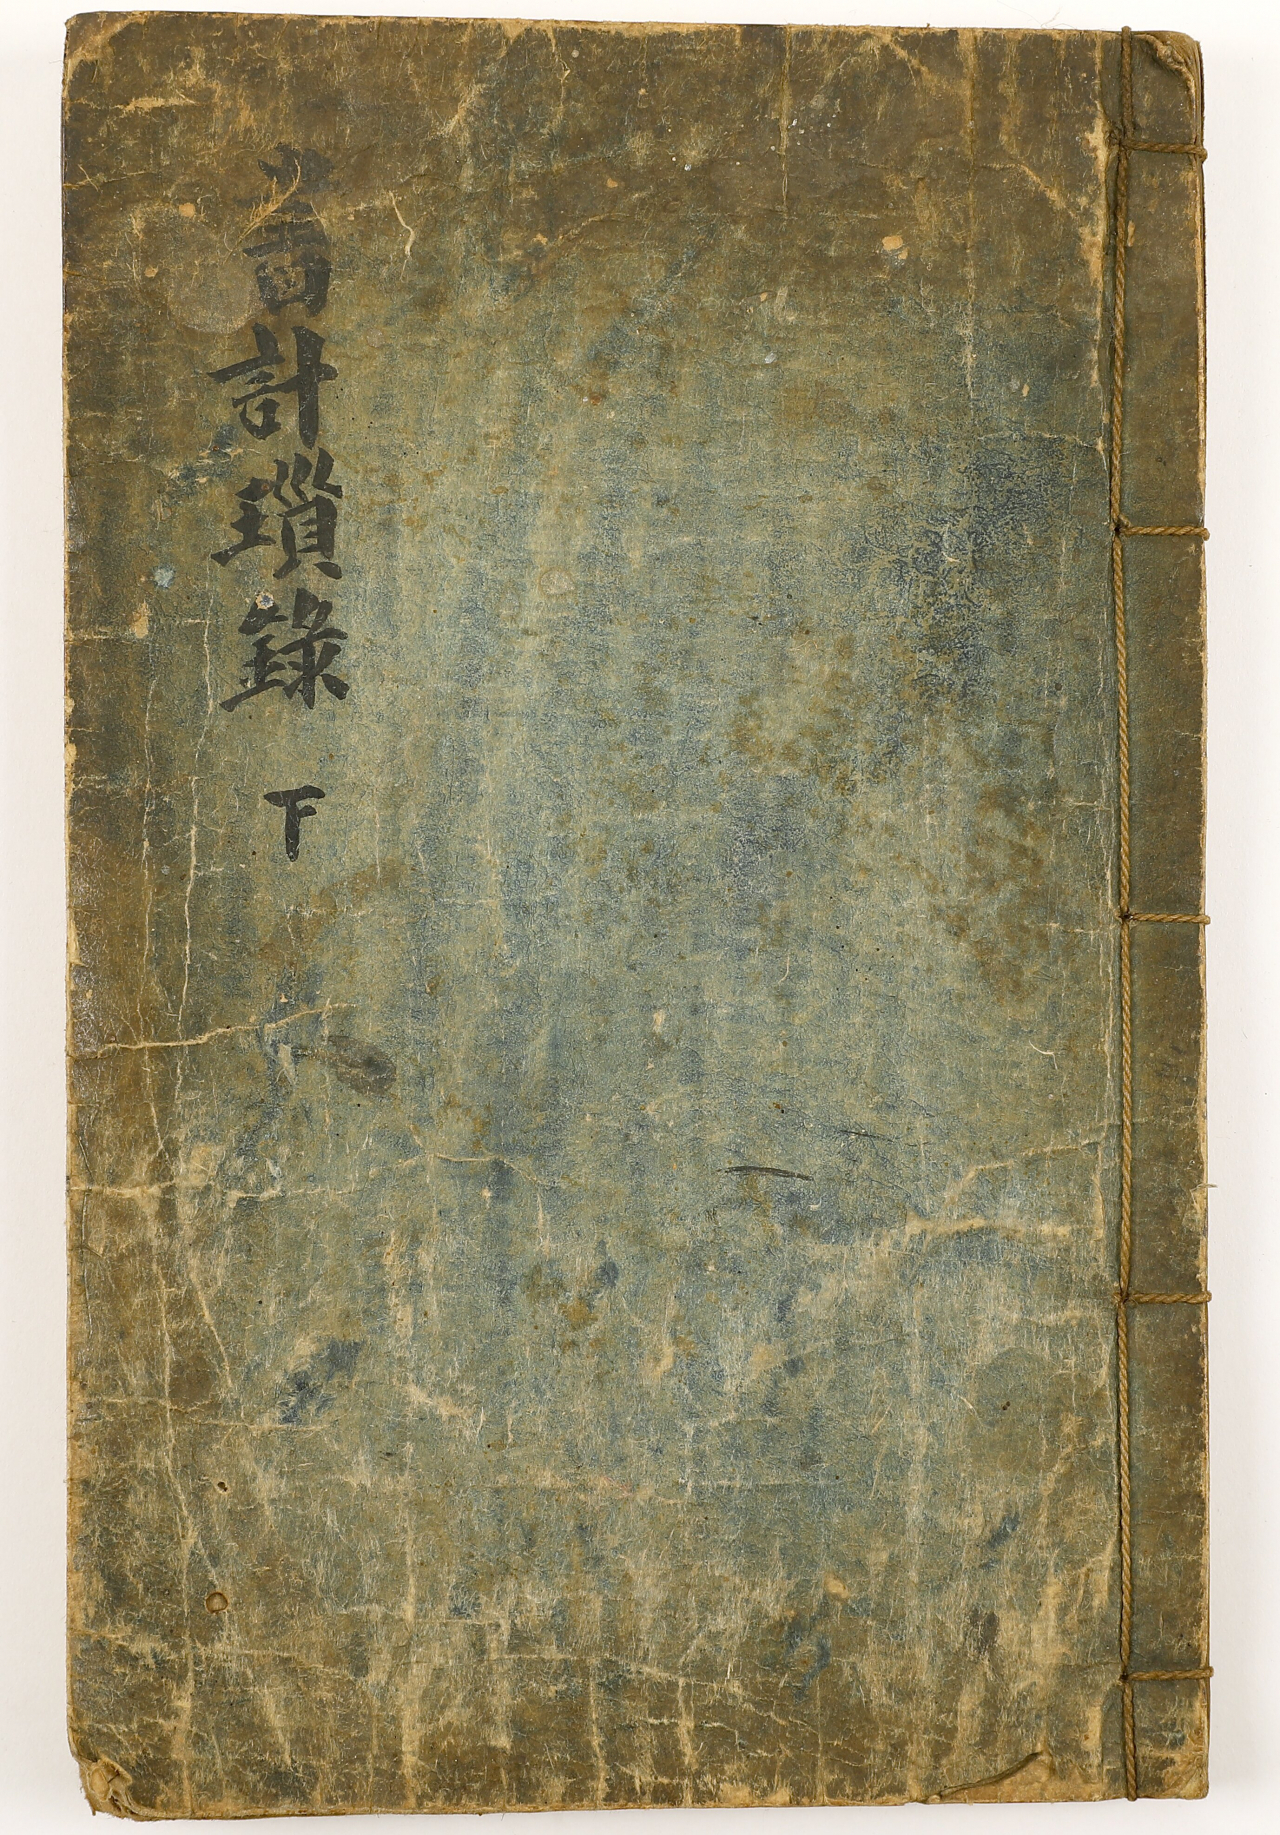 書計瑣錄 下